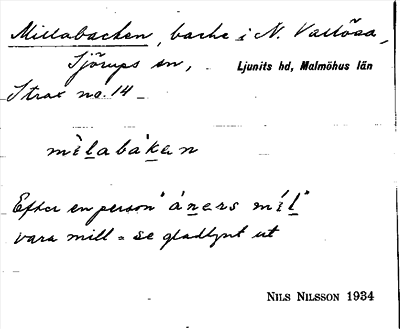 Millabacken, backe i N. Vallösa,
Sjörups sn, Ljunits hd, Malmöhus län
Strax no. 14
mìlabàkен
Efter en person "áners míl"
vara mill = se gladlynt ut
NILS NILSSON 1934